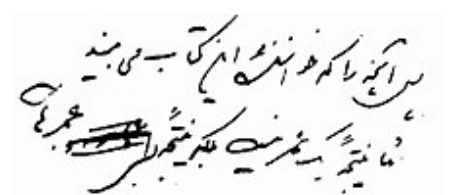 پس آنچه را که خواننده این کتاب می بیند
نتیجهٔ یک عمر نیست بلکه نتیجهٔ عمرهاست